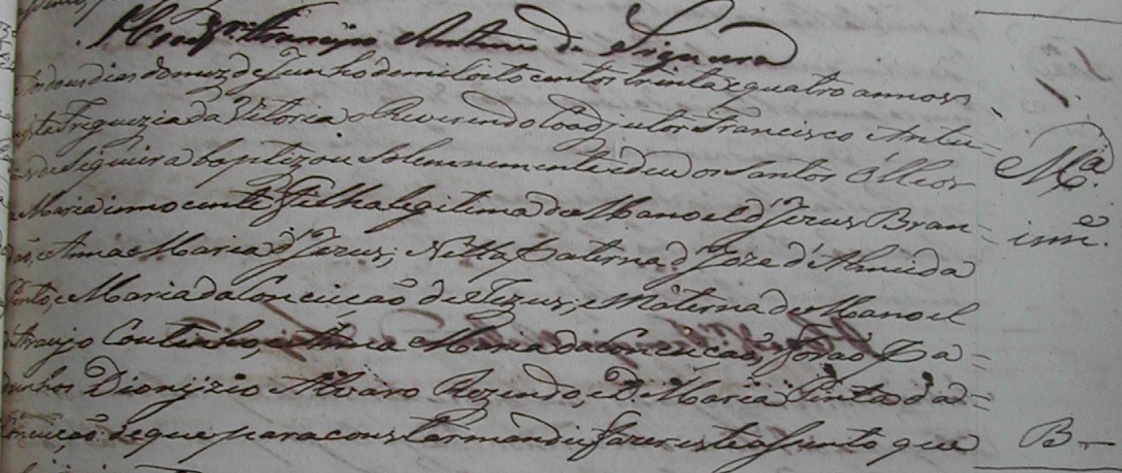 Francisco Antonio de Siqueira
Aos dous dias do mez de Junho de mil oito centos trinta e quatro annos n
esta Freguezia da Vitoria o Reverendo Coadjutor Francisco Anto=
de Siqueira baptizou solemnemente e deu os Santos Olleos
Mª
a Maria innocente Filha legitima de Manoel d' Jezus Bran=
inne.
e Anna Maria d' Jezus; Netta paterna d' Joze d' Almeida
Pinto, e Maria da Conceição de Jezus, e Materna de Manoel
Araujo Coutinho, e Anna Maria da Conceição, forão Pa=
drinhos Dionizio Alvaro Rezendo, e D. Maria Pinta da=
Conceição: de que para constar mandei fazer este assento que
B